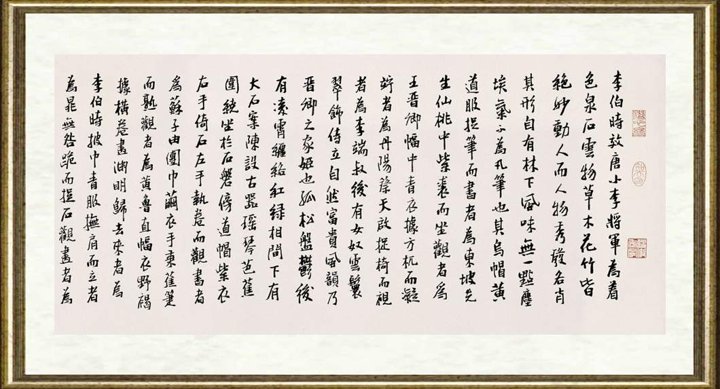 李伯時效唐小李將軍為着
色泉石雲物草木花竹皆
絕妙動人而人物秀發各肖
其形自有林下風味無一點塵
埃氣不為凡筆也其烏帽黃
道服捉筆而書者為東坡先
生仙桃巾紫裘而坐觀者為
王晉卿幅巾青衣據方机而凝
竚者為丹陽蔡天啟捉椅而視
者為李端叔後有女奴雲鬟
翠飾侍立自然富貴風韻乃
晉卿之家姬也孤松盤鬱後
有凌霄纏絡紅綠相間下有
大石案陳設古器瑤琴芭蕉
圍繞坐於石磐傍道帽紫衣
右手倚石左手執卷而觀書者
為蘇子由團巾繭衣手秉蕉箑
而熟觀者為黃魯直幅衣野褐
據橫卷畫淵明歸去來者為
李伯時披巾青服撫肩而立者
為晁無咎跪而捉石觀畫者為